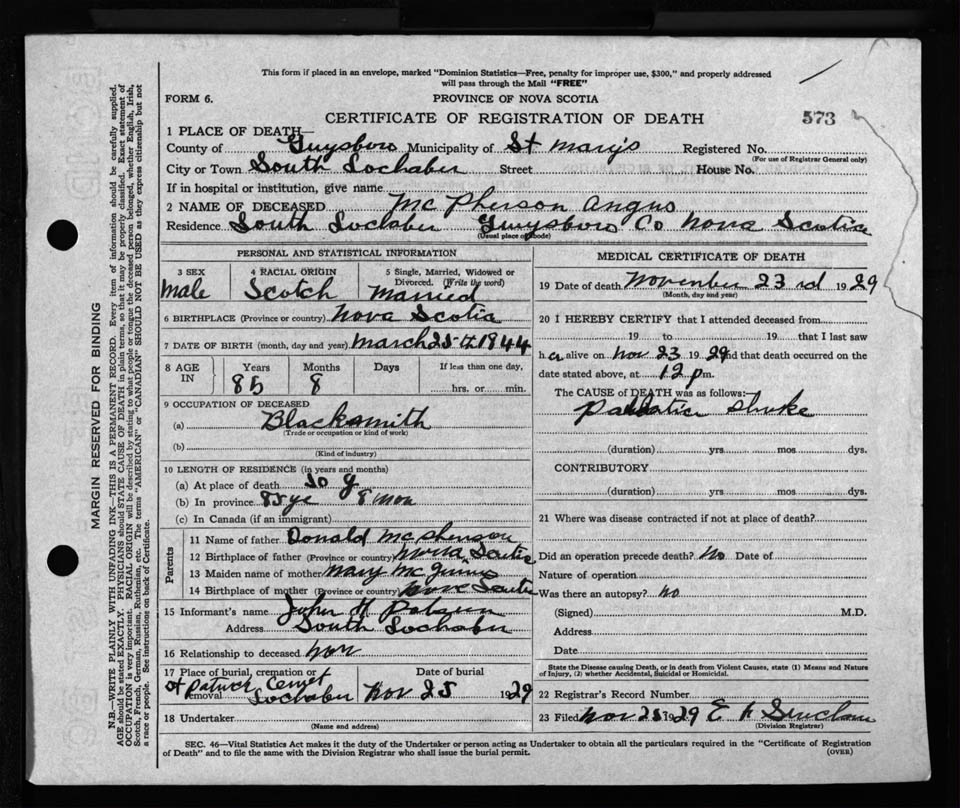 This form if placed in an envelope, marked "Dominion Statistics—Free, penalty for improper use, $300," and properly addressed
will pass through the Mail "FREE"
FORM 6.
PROVINCE OF NOVA SCOTIA
CERTIFICATE OF REGISTRATION OF DEATH
573
1 PLACE OF DEATH—
County of Guysboro Municipality of St Mary's Registered No.
(For use of Registrar General only)
City or Town South Lochaber Street House No.
If in hospital or institution, give name
2 NAME OF DECEASED McPherson Angus
Residence South Lochaber Guysboro Co Nova Scotia
(Usual place of abode)
PERSONAL AND STATISTICAL INFORMATION
3 SEX 4 RACIAL ORIGIN 5 Single, Married, Widowed or
Divorced. (Write the word)
Male Scotch Married
6 BIRTHPLACE (Province or country) Nova Scotia
7 DATE OF BIRTH (month, day and year) March 25th 1844
8 AGE IN Years Months Days If less than one day,
85 8 hrs. or min.
9 OCCUPATION OF DECEASED
(a) Blacksmith
(Trade or occupation or kind of work)
(b)
(Kind of industry)
10 LENGTH OF RESIDENCE (in years and months)
(a) At place of death
(b) In province 85 ye 8 mon
(c) In Canada (if an immigrant)
Parents
11 Name of father Donald McPherson
12 Birthplace of father (Province or country) Nova Scotia
13 Maiden name of mother Mary
14 Birthplace of mother (Province or country) Nova Scotia
15 Informant's name John H
Address South Lochaber
16 Relationship to deceased non
17 Place of burial, cremation or removal Date of burial
St Cemet
Lochaber Nov 25 1929
18 Undertaker
(Name and address)
MEDICAL CERTIFICATE OF DEATH
19 Date of death November 23rd 1929
(Month, day and year)
20 I HEREBY CERTIFY that I attended deceased from
19 to 19 that I last saw
h alive on Nov 23 1929 and that death occurred on the
date stated above, at 12 p m.
The CAUSE of DEATH was as follows:—
stroke
(duration) yrs. mos. dys.
CONTRIBUTORY
(duration) yrs. mos. dys.
21 Where was disease contracted if not at place of death?
Did an operation precede death? No Date of
Nature of operation
Was there an autopsy? no
(Signed) M.D.
Address
Date
State the Disease causing Death, or in death from Violent Causes, state (1) Means and Nature
of Injury, (2) whether Accidental, Suicidal or Homicidal.
22 Registrar's Record Number
23 Filed Nov 25 1929 E A Sinclair
(Division Registrar)
SEC. 46—Vital Statistics Act makes it the duty of the Undertaker or person acting as Undertaker to obtain all the particulars required in the "Certificate of Registration
of Death" and to file the same with the Division Registrar who shall issue the burial permit.
(OVER)
MARGIN RESERVED FOR BINDING
N.B.—WRITE PLAINLY WITH UNFADING INK—THIS IS A PERMANENT RECORD. Every item of information should be carefully supplied.
AGE should be stated EXACTLY. PHYSICIANS should STATE CAUSE OF DEATH in plain terms, so that it may be properly classified. Exact statement of
OCCUPATION is very important. RACIAL ORIGIN will be described by stating to what people or tongue the deceased person belonged, whether English, Irish,
Scotch, French, German, Russian, Ruthenian, etc. The terms "AMERICAN" or "CANADIAN" SHOULD NOT BE USED as they express citizenship but not
a race or people. See instructions on back of Certificate.